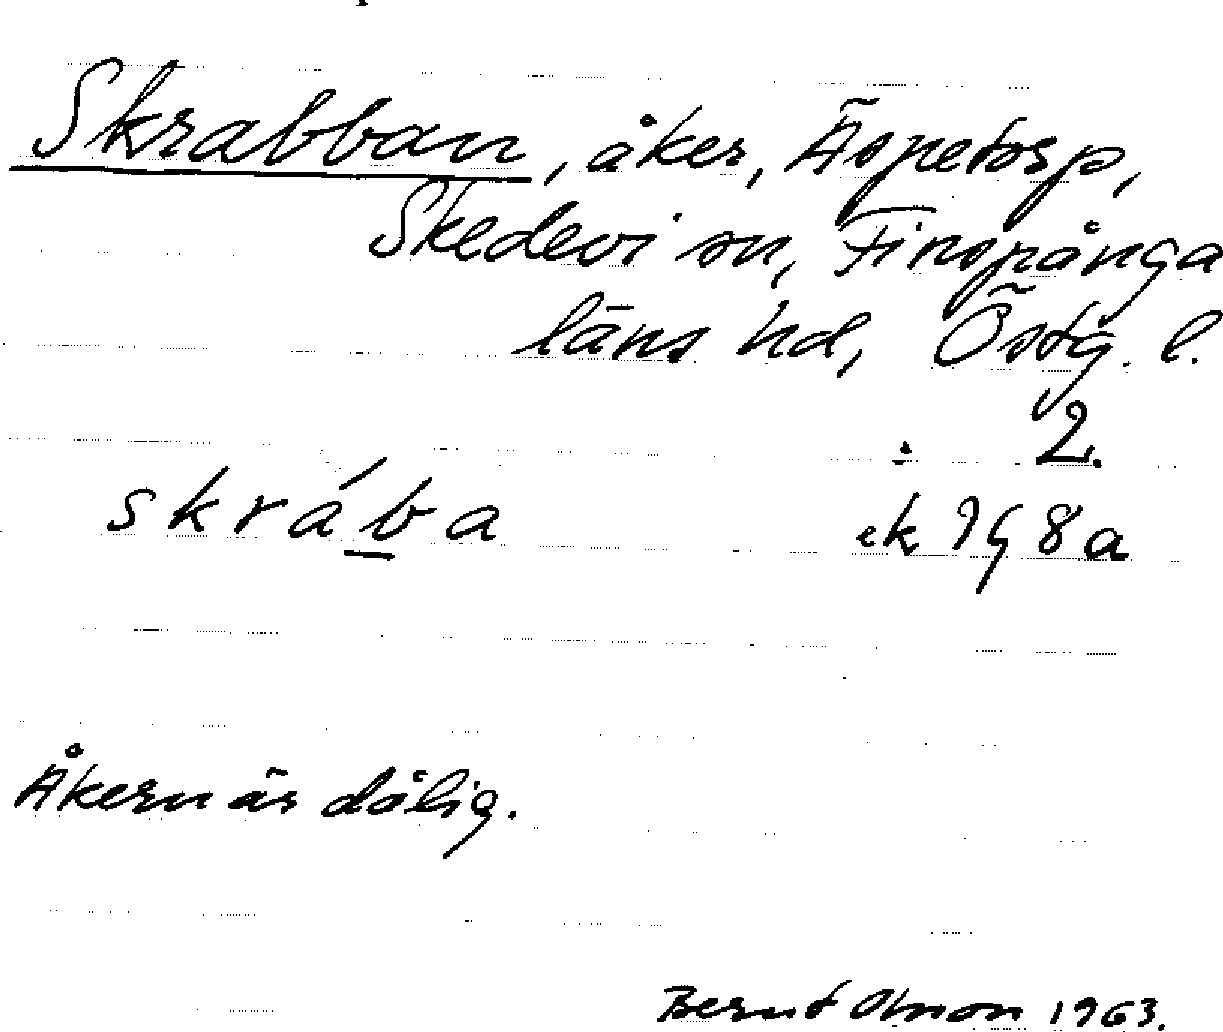 Skrabban, åker, Äspetorp,
Skedevi sn, Finspånga
läns hd, Östg. l.
2.
skrába ek 798a
Åkern är dålig.
Bernt Olsson 1963.